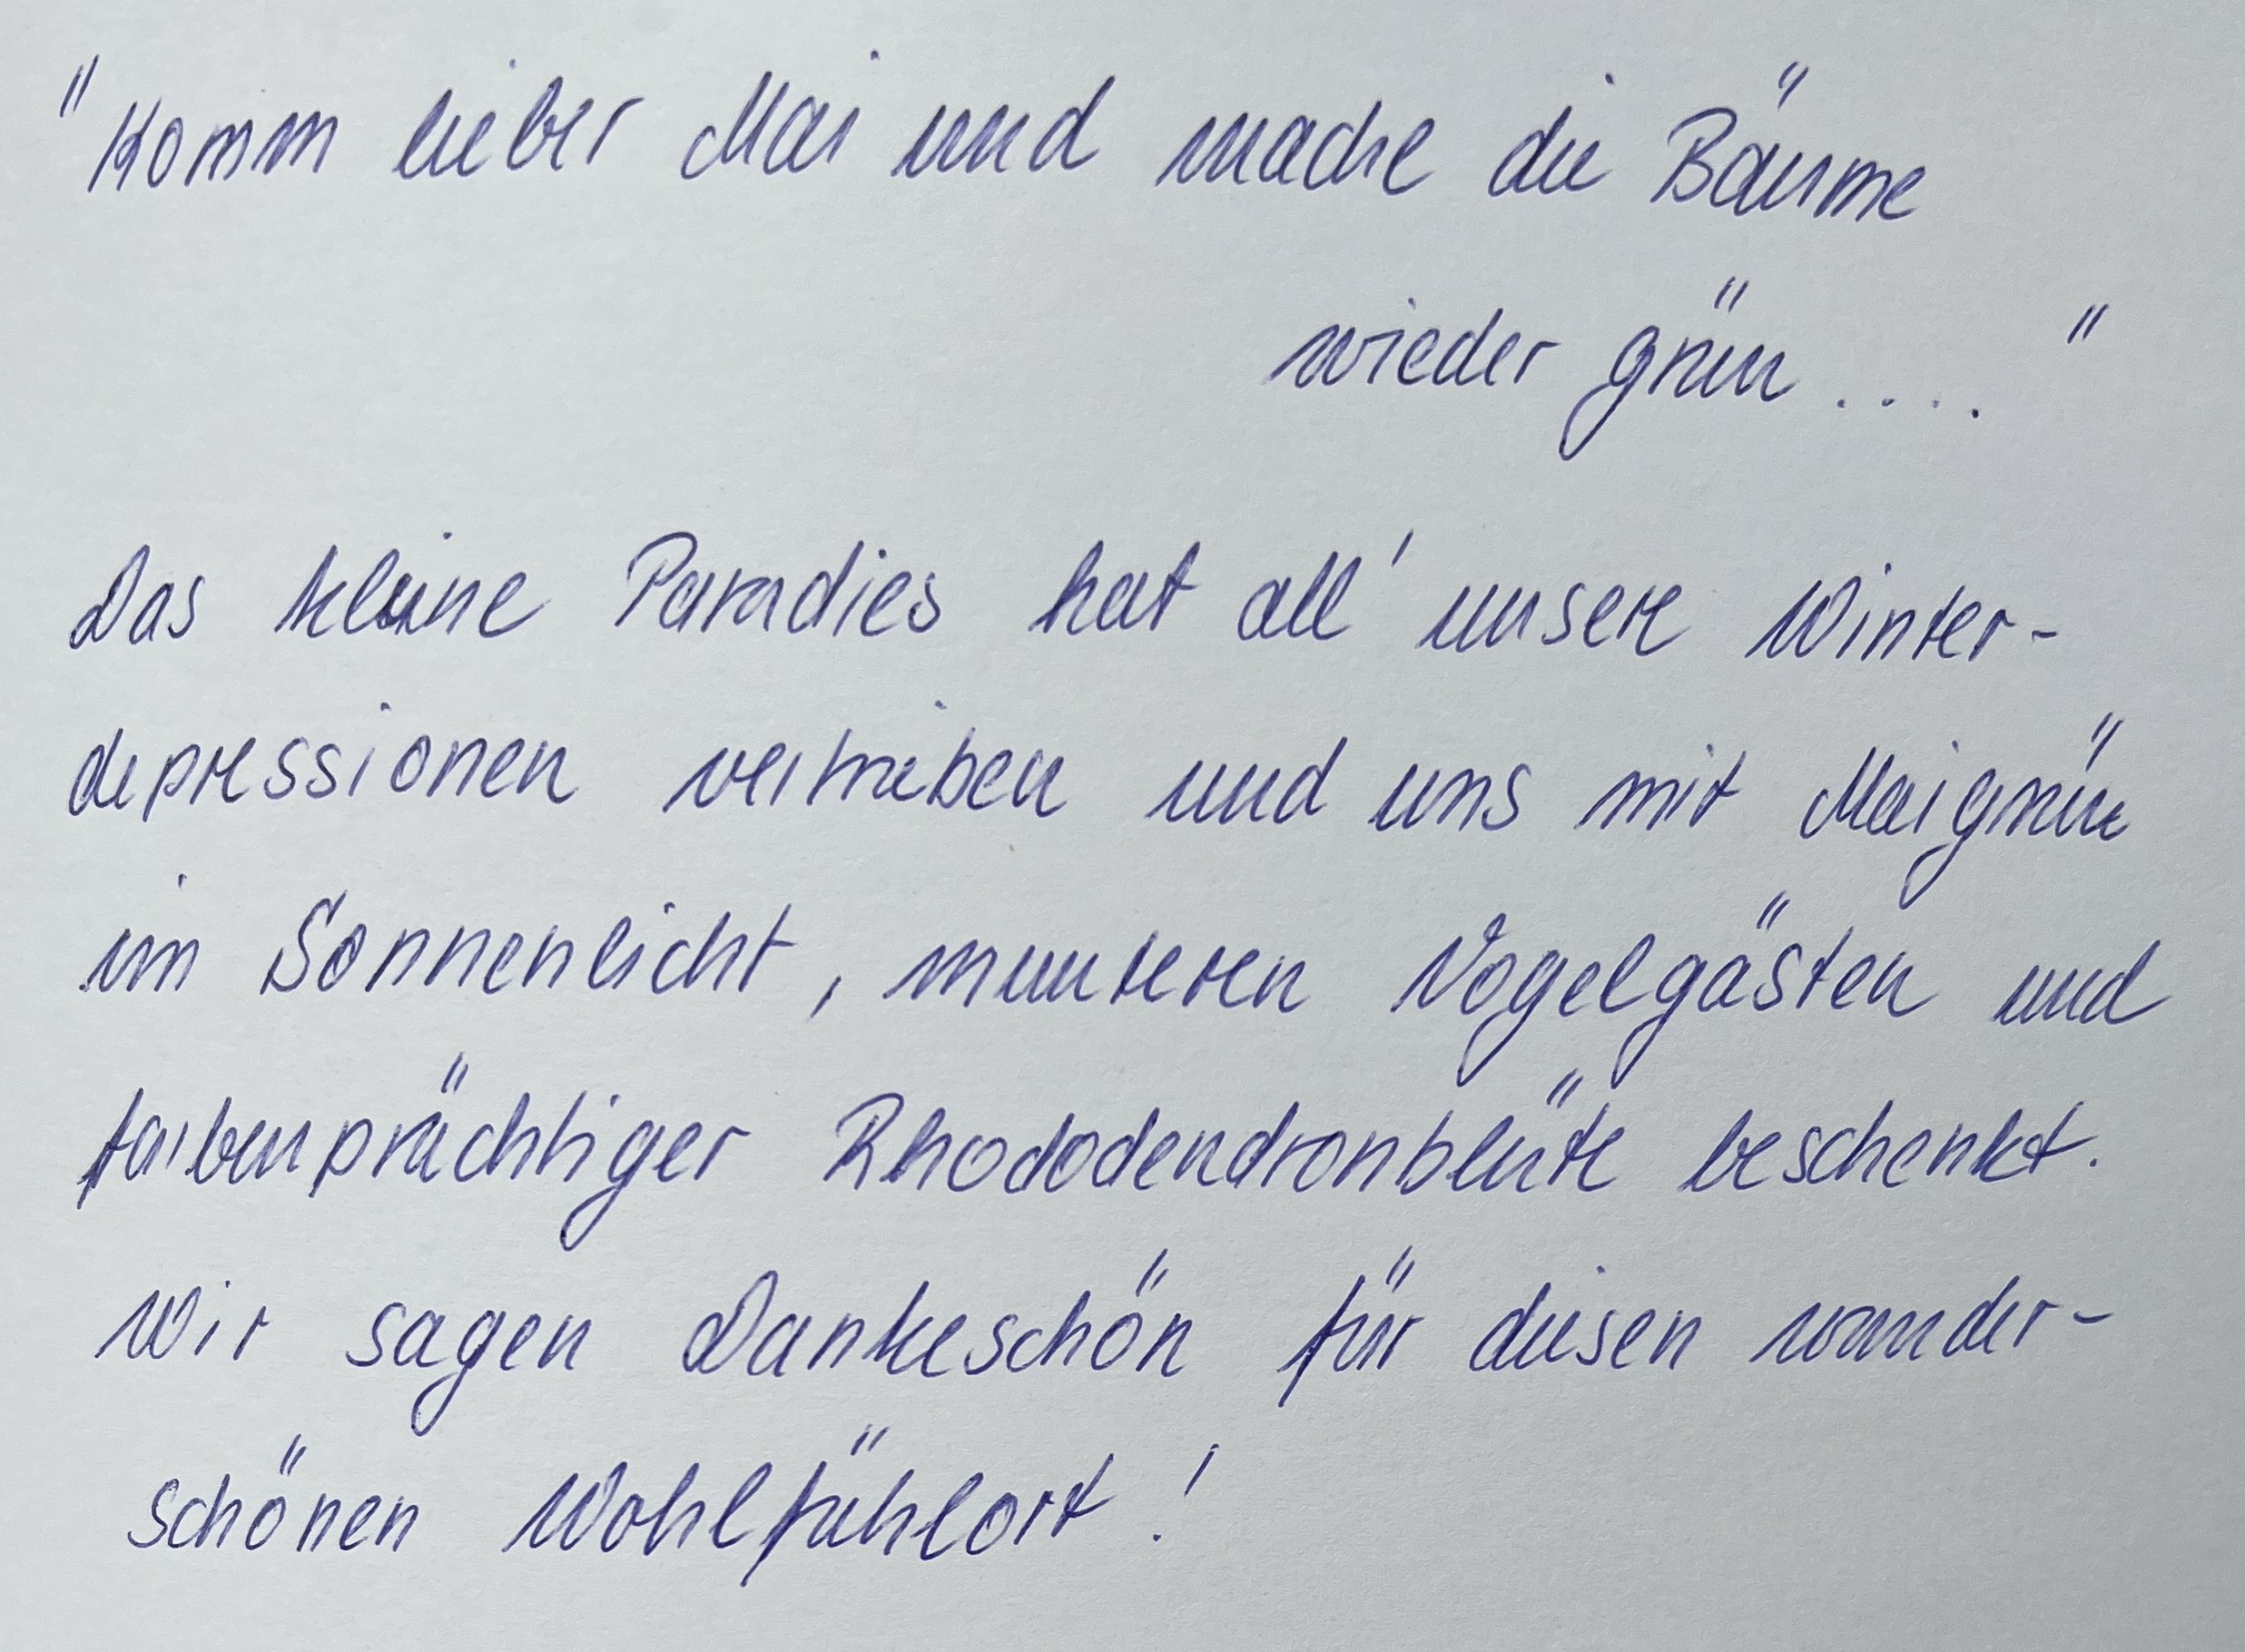 "Komm lieber Mai und mache die Bäume
wieder grün .... "
Das kleine Paradies hat all' unsere Winter-
depressionen vertrieben und uns mit Maigrün
im Sonnenlicht, munteren Vogelgästen und
farbenprächtiger Rhododendronblüte beschenkt.
Wir sagen Dankeschön für diesen wunder-
schönen Wohlfühlort!